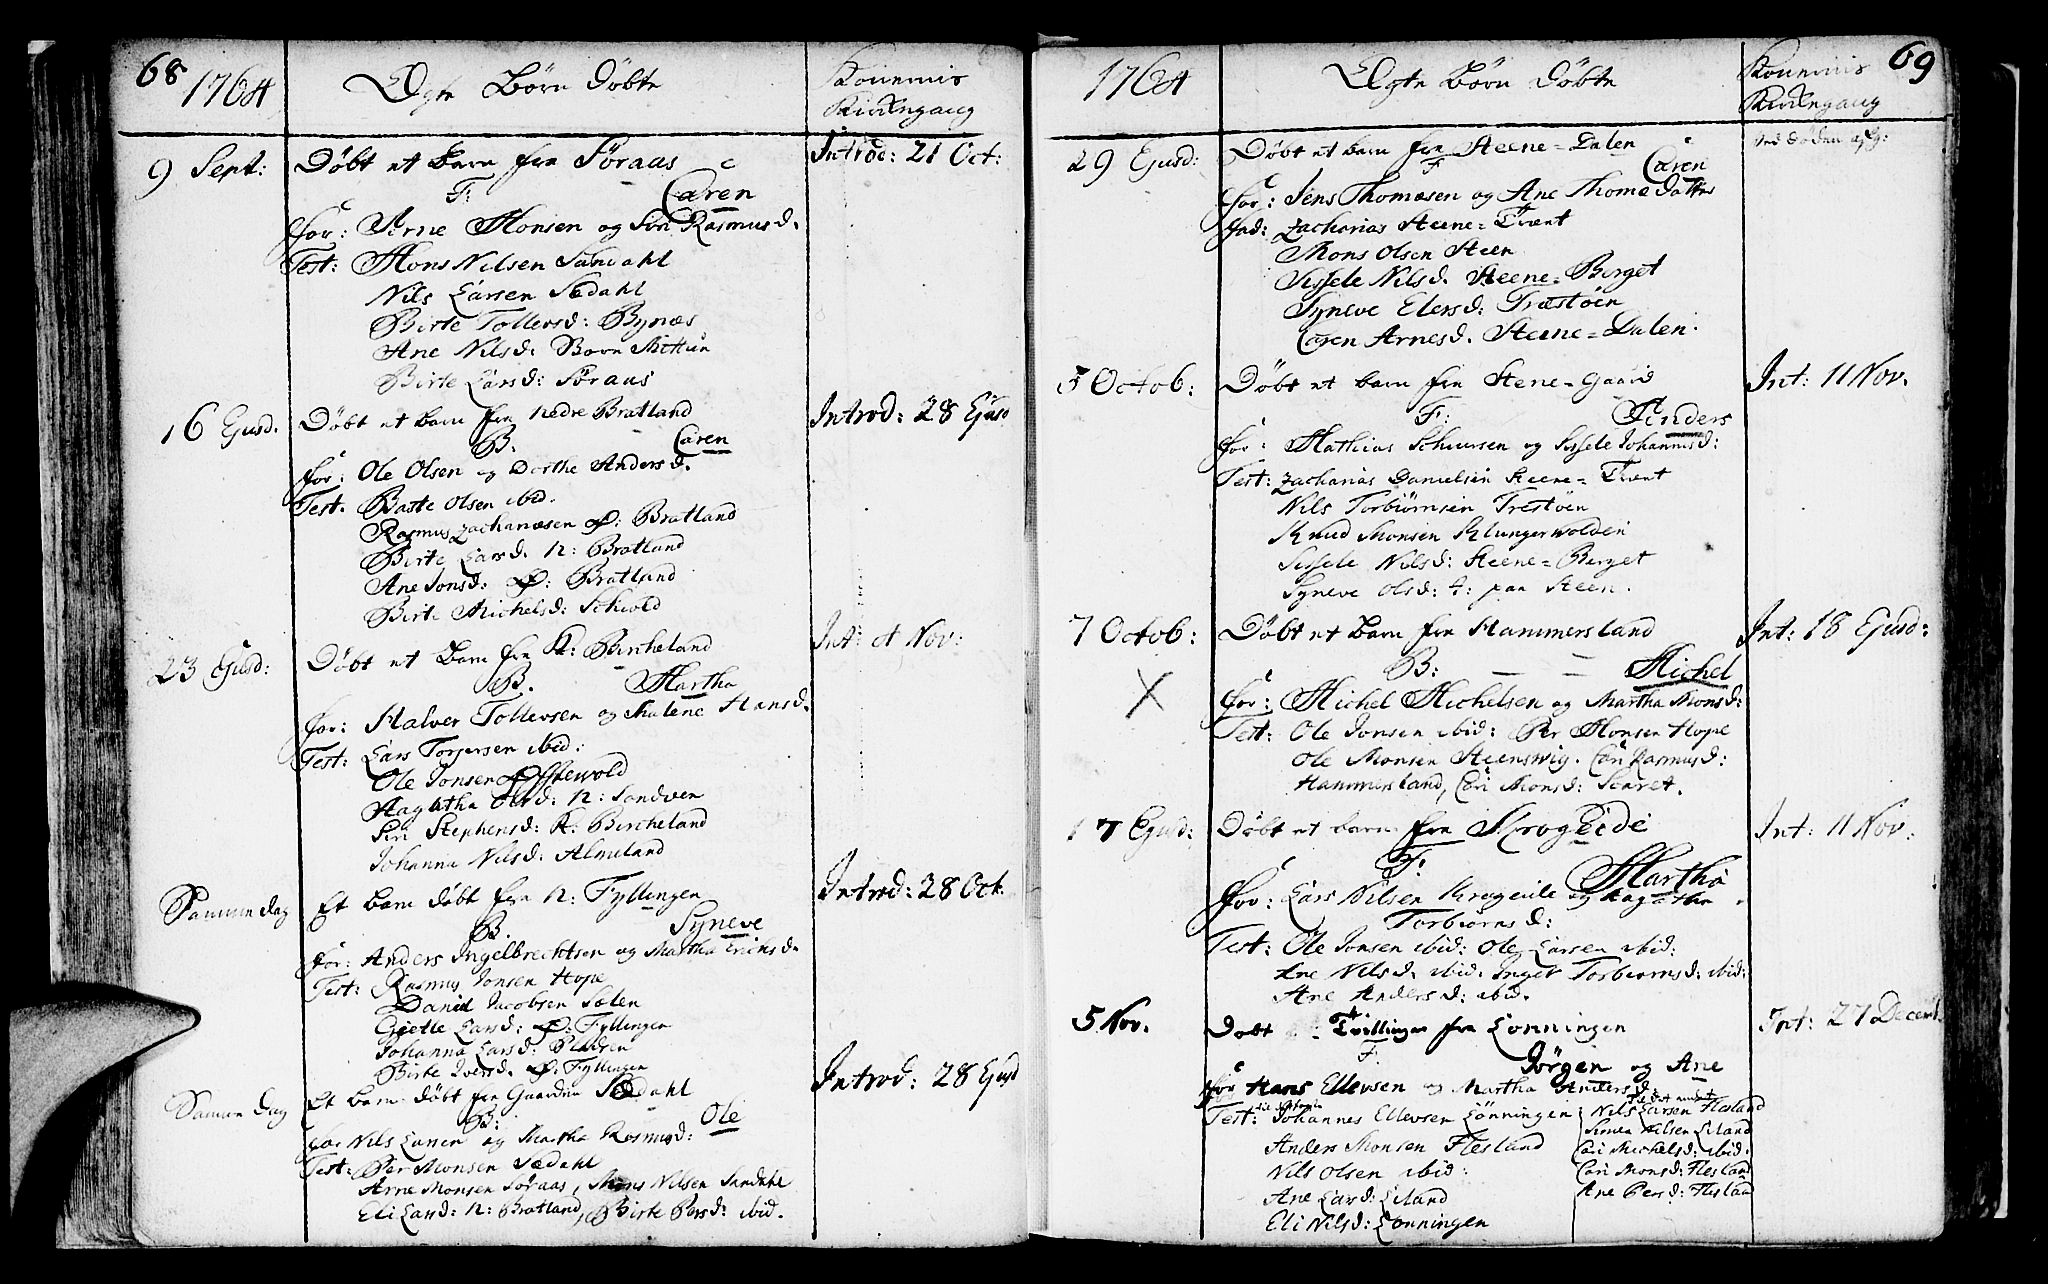 68
1764
Ægte Børn Døbte
Konernis
Kirkengang
9 Sept:
Døbt et Barn fra Søraas
Introd: 21 Oct:
F: Caren
for: Arne Monsen og Siri Rasmusd.
Test: Mons Nilsen Sandahl
Nils Larsen Sædahl
Birte Tollevsd: Bynæs
Ane Nilsd: Birte Larsd: Søraas
16 Ejusd.
Døbt et barn fra nedre Bratland
Introd: 28 Ejusd
B. Caren
for: Ole Olsen og Dorthe Andersd.
Test. Baste Olsen ibid.
Rasmus Zachariæsen Ø: Bratland
Birte Larsd. N: Bratland
Ane Jonsd: Ø: Bratland
Birte Michelsd: Schiold
23 Ejusd:
Døbt et Barn fra K: Bircheland
Int: 4 Nov:
B. Martha
for: Halver Tollevsen og Malene Hansd.
Test: Lars Torgersen ibid:
Ole Jonsen Øffstewold
Aagatha Olsd: N: Sandven
Siri Stephensd: K: Bircheland
Johanna Nilsd: Almeland
Samme Dag
Et barn døbt fra N: Fyllingen
Introd: 28 Oct.
B. Syneve
for: Anders Ingelbrechtsen og Martha Erichsd.
Test: Rasmus Jonsen Hope
Daniel Jacobsen Sælen
Giætle Larsd: Ø: Fyllingen
Johanna Larsd: Pladsen
Birte Iversd. Ø: Fyllingen
Samme Dag
Et barn døbt fra Gaarden Sædahl
Introd: 28 Ejusd
B: Ole
for Nils Larsen og Martha Rasmusd:
Test: Per Monsen Sædahl
Arne Monsen Søraas, Mons Nilsen Sandahl
Eli Larsd: N: Bratland, Birte Persd: ibid.
69
1764
Ægte Børn Døbte
Konernis
Kirkengang
29 Ejusd:
Døbt et barn fra Steene=Dalen
ved Døden afg:
F Caren
for: Jens Thomæsen og Ane Thomædatter
fad: Zacharias Steene=Tvæt
Mons Olsen Steen
Sissele Nilsd. Steene=Berget
Syneve Elersd: Træstøen
Caren Arnesd. Steene=Dalen.
5 Octob:
Døbt et barn fra Stene=Gaard
Int: 11 Nov.
F: Anders
for: Mathias Schiursen og Sissele Johannisd:
Test: Zacharias Danielsen Steene=Tvæt
Nils Torbiørnsen Trestøen
Knud Monsen Klungerwolden
Sissele Nilsd: Steene=Berget
Syneve Olsd: paa Steen.
7 Octob:
Døbt et barn fra Hammersland
Int: 18 Ejusd:
B: Michel
X
for: Michel Michelsen og Martha Monsd:
Test: Ole Jonsen ibid: Per Monsen Hope
Ole Monsen Steenswig. Cari Rasmusd:
Hammersland, Cari Monsd: Scaret.
17 Ejusd:
Døbt et barn fra Krogeide
Int: 11 Nov.
F: Martha
for: Lars Nilsen Krogeide og Aagatha
Torbiørnsd:
Test: Ole Jonsen ibid: Ole Larsen ibid:
Ane Nilsd. ibid: Inger Torbiørnsd: ibid:
Ane Andersd: ibid.
5 Nov.
Døbt Tvillinger fra Lønningen
Int: 27 Decemb.
F. Jørgen og Ane
for Hans Ellevsen og Martha Andersd:
Test: Johannes Ellevsen Lønningen
Nils Larsen Flesland
Anders Monsen Flesland
Simen Nilsen Liland
Nils Olsen ibid:
Cari Michelsd: ibid:
Ane Larsd: Liland
Cari Monsd: Flesland
Eli Nilsd: Lønningen
Ane Persd: Flesland